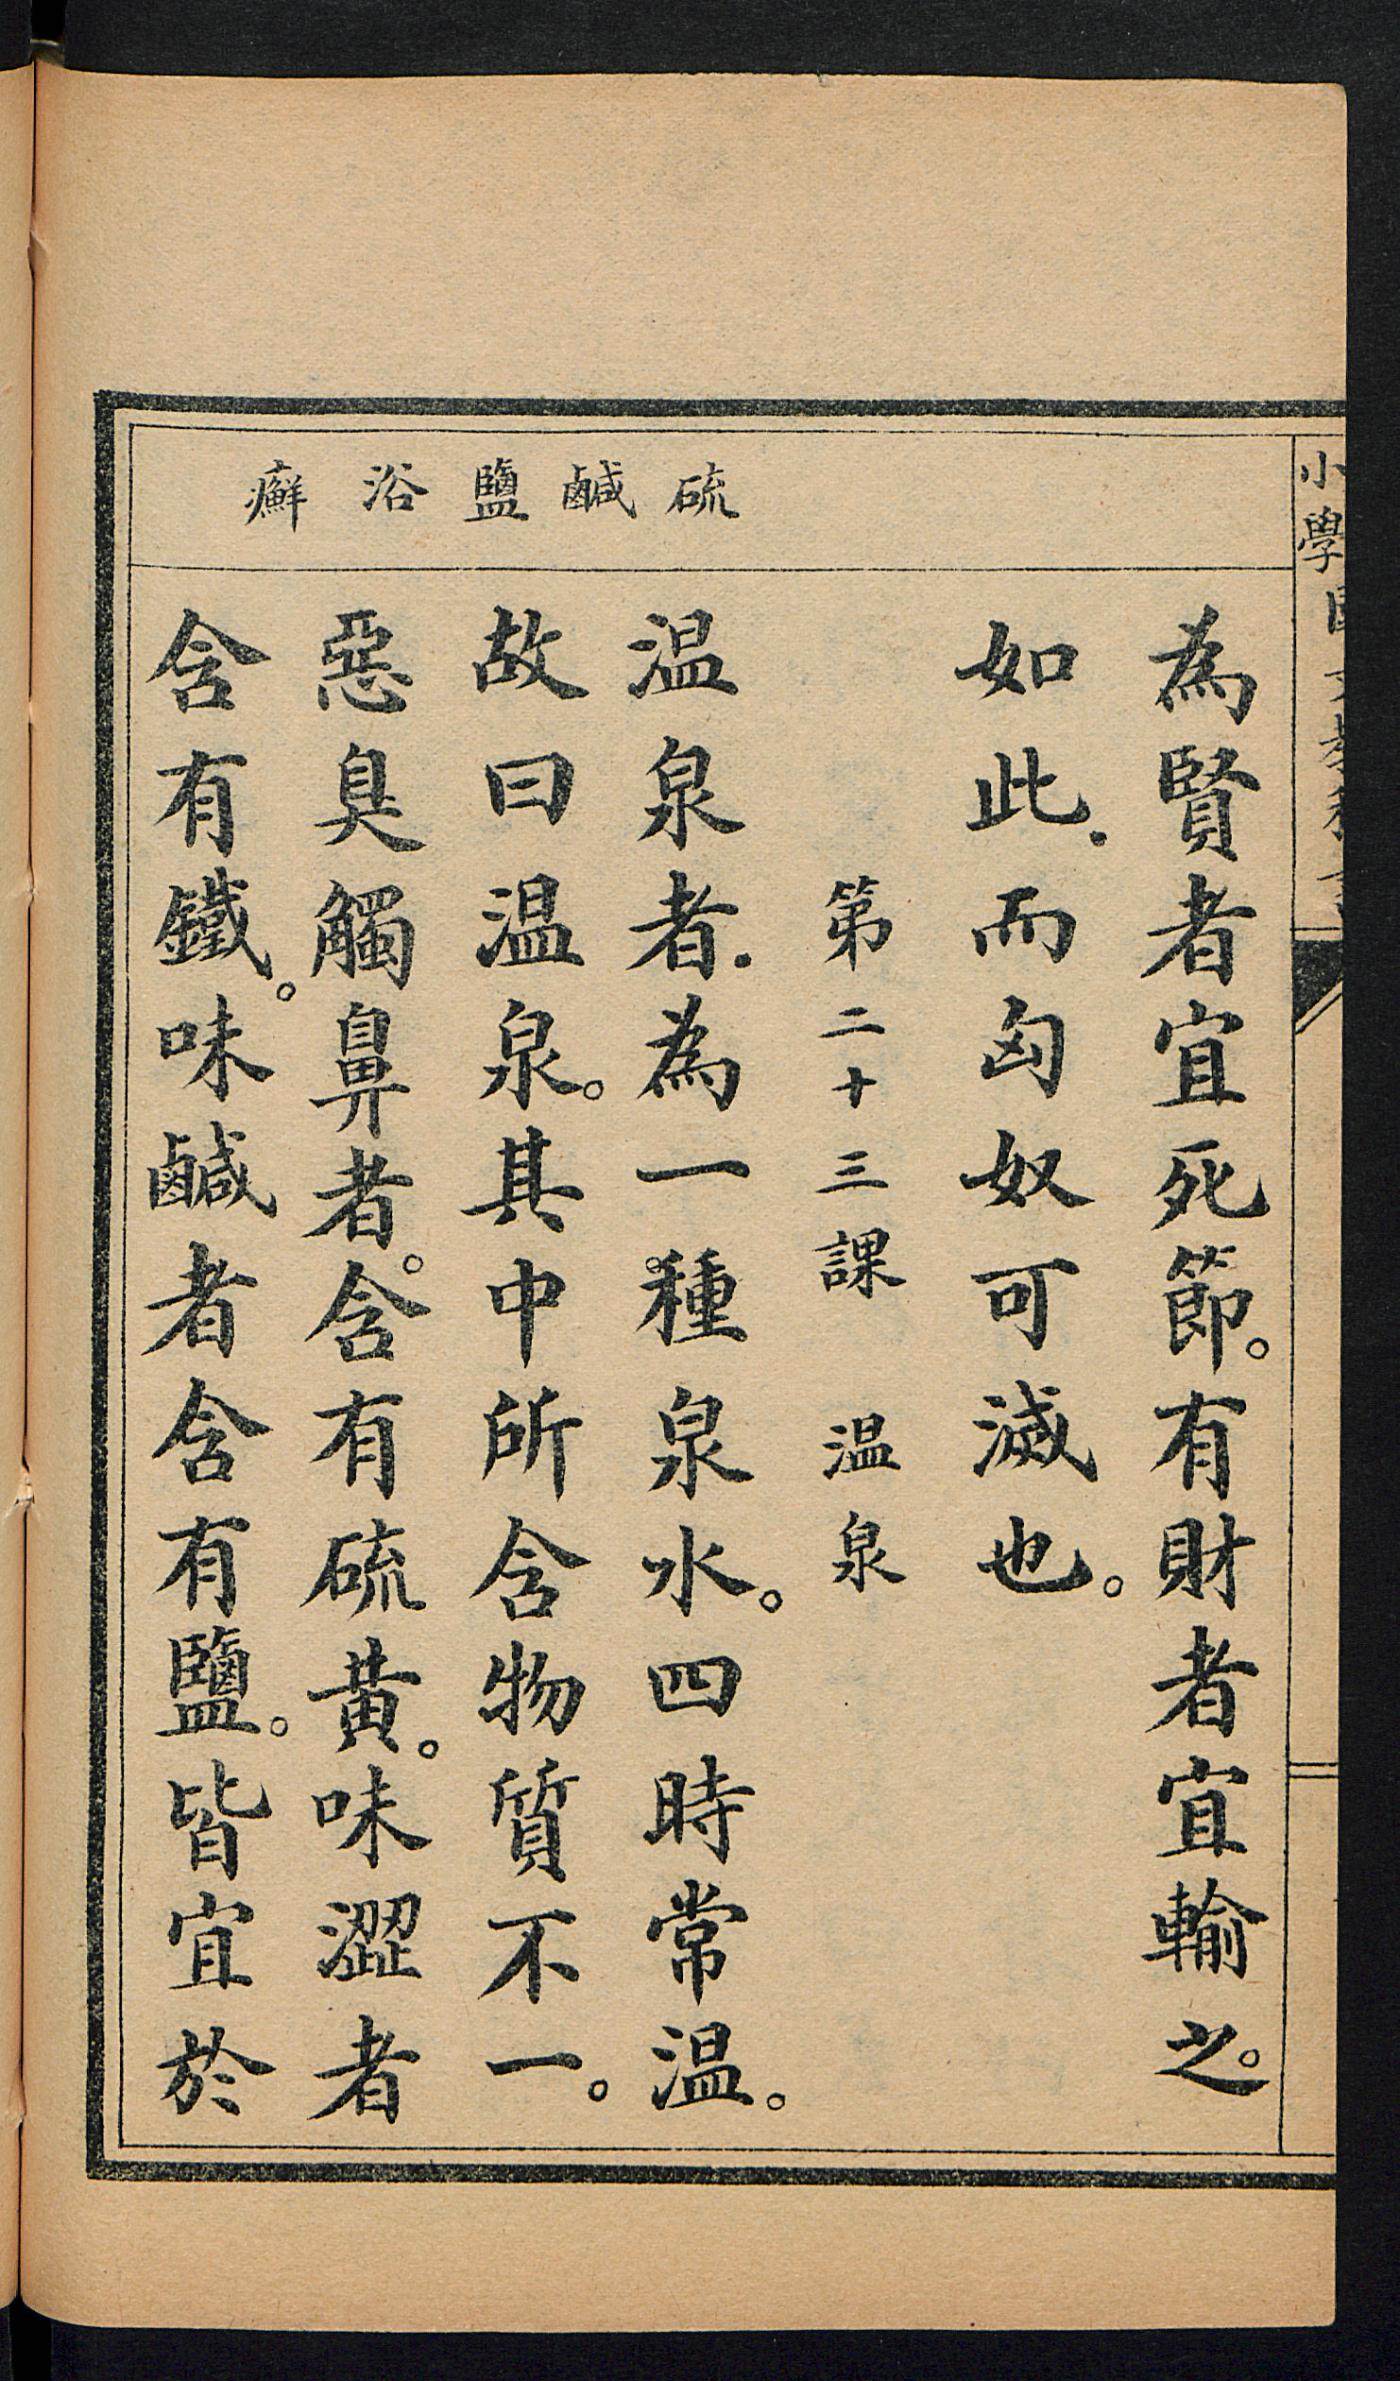 小學
硫鹹鹽浴癬
為賢者宜死節。有財者宜輸之。
如此．而匈奴可滅也。
第二十三課　温泉
温泉者．為一種泉水。四時常温。
故曰温泉。其中所含物質不一。
惡臭觸鼻者。含有硫黄。味澀者
含有鐵。味鹹者含有鹽。皆宜於